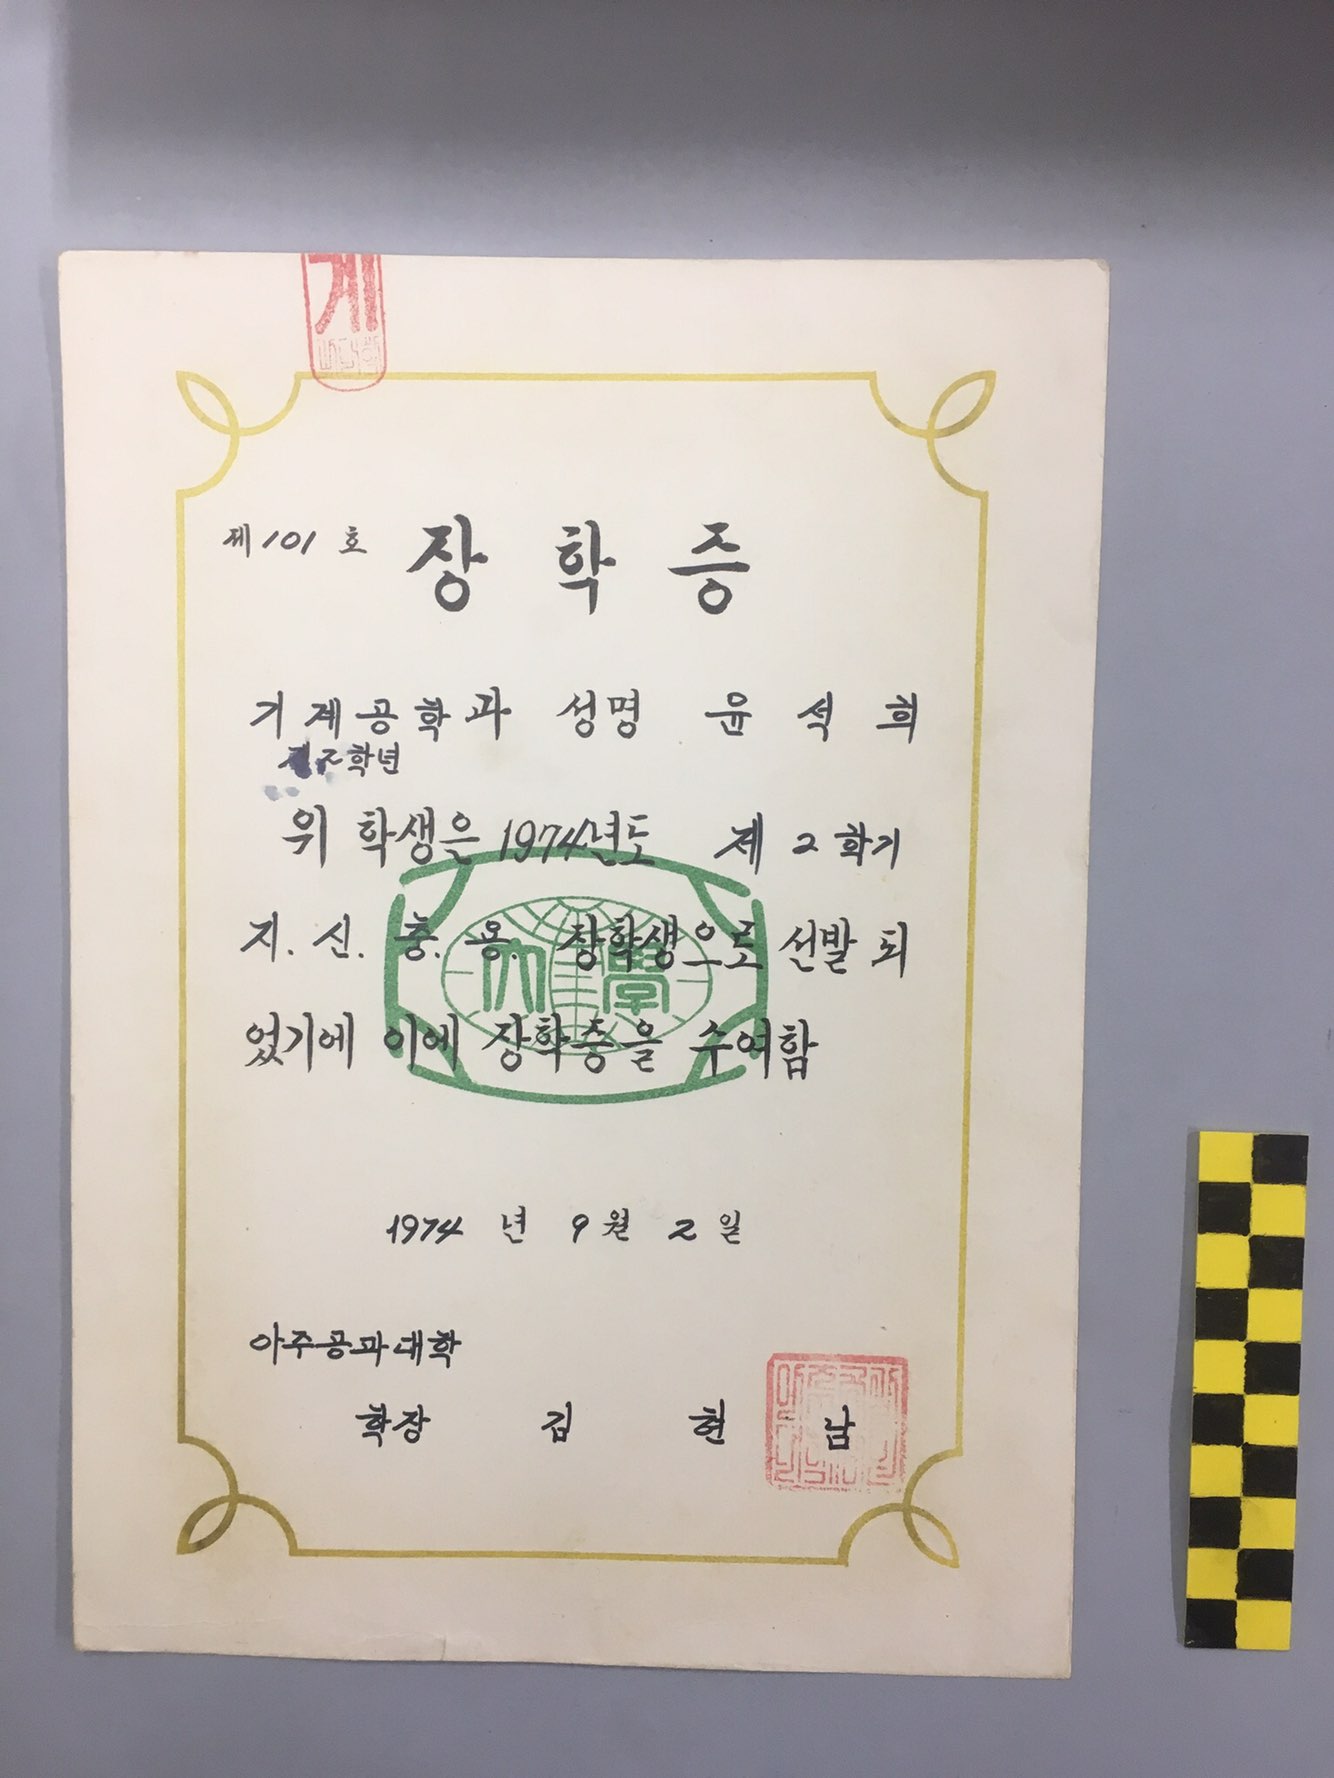 계
제 101 호 장 학 증
기계공학과 성명 윤 석 희
학년
위 학생은 1974년도 제 2 학기
지. 신. 충. 용. 장학생으로 선발 되
었기에 이에 장학증을 수여함
大學
1974 년 9 월 2 일
아주공과대학
학장 김 현 남